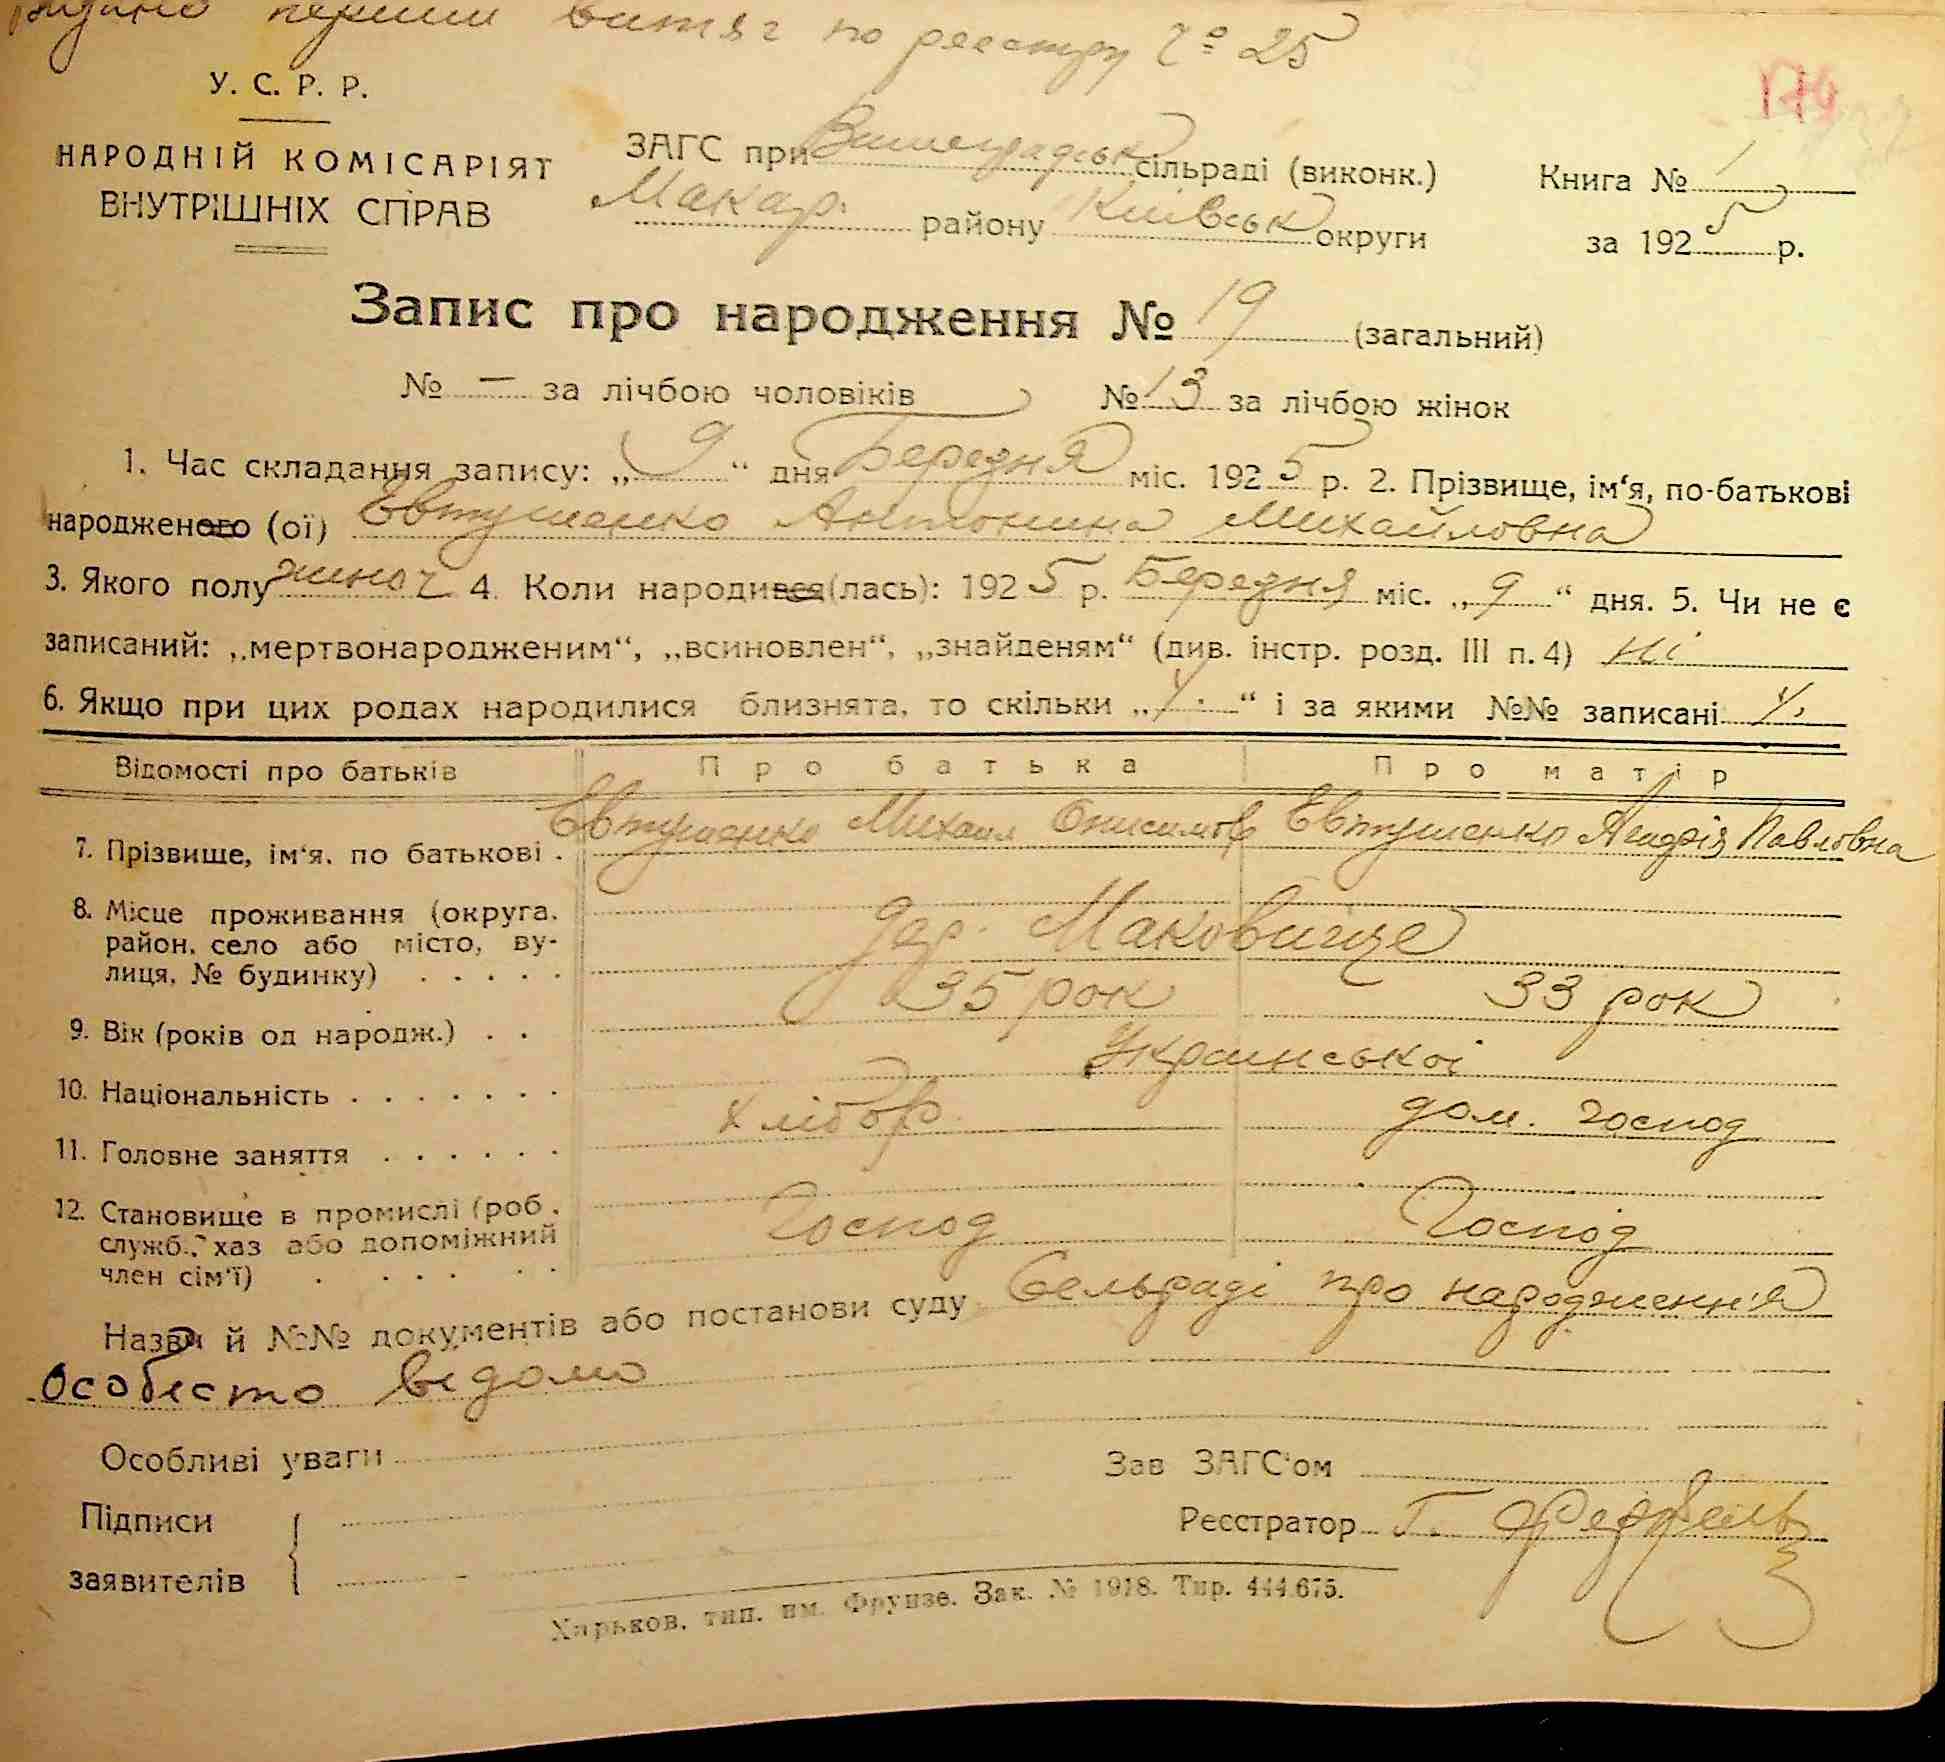 Видано перший витяг по реестру Ч⁰ 25
У. С. Р. Р.
НАРОДНІЙ КОМІСАРІЯТ
ВНУТРІШНІХ СПРАВ
ЗАГС при Вишеградськ сільраді (виконк.)
Макар. району Київськ округи
Книга № 1
за 1925 р.
174
Запис про народження № 19 (загальний)
№ — за лічбою чоловіків № 13 за лічбою жінок
1. Час складання запису: „9“ дня Березня міс. 1925 р. 2. Прізвище, ім‘я, по-батькові
народженого (ої) Евтушенко Антонина Михайловна
3. Якого полу жиноч 4. Коли народився(лась): 1925 р. Березня міс. „9“ дня. 5. Чи не є
записаний: „мертвонародженим“, „всиновлен“, „знайденям“ (див. інстр. розд. III п. 4) ні
6. Якщо при цих родах народилися близнята, то скільки „ “ і за якими №№ записані
Відомості про батьків Про батька Про матір
7. Прізвище, ім‘я, по батькові . Евтушенко Михаил Онисимов Евтушенко Павловна
8. Місце проживання (округа,
район, село або місто, ву-
лиця, № будинку) . . . . . дер. Маковище
9. Вік (років од народж.) . . 35 рок 33 рок
10. Національність . . . . . . . Украинськоі
11. Головне заняття . . . . . . Хлібор дом. господ
12. Становище в промислі (роб.,
служб., хаз або допоміжний
член сім‘ї) . . . . . . Господ Господ
Назви й №№ документів або постанови суду Сельраді про народження
Особисто ведомо
Особливі уваги
Зав ЗАГС‘ом
Підписи
заявителів
Реєстратор Г.
Харьков, тип. им. Фрунзе. Зак. № 1918. Тир. 444.675.